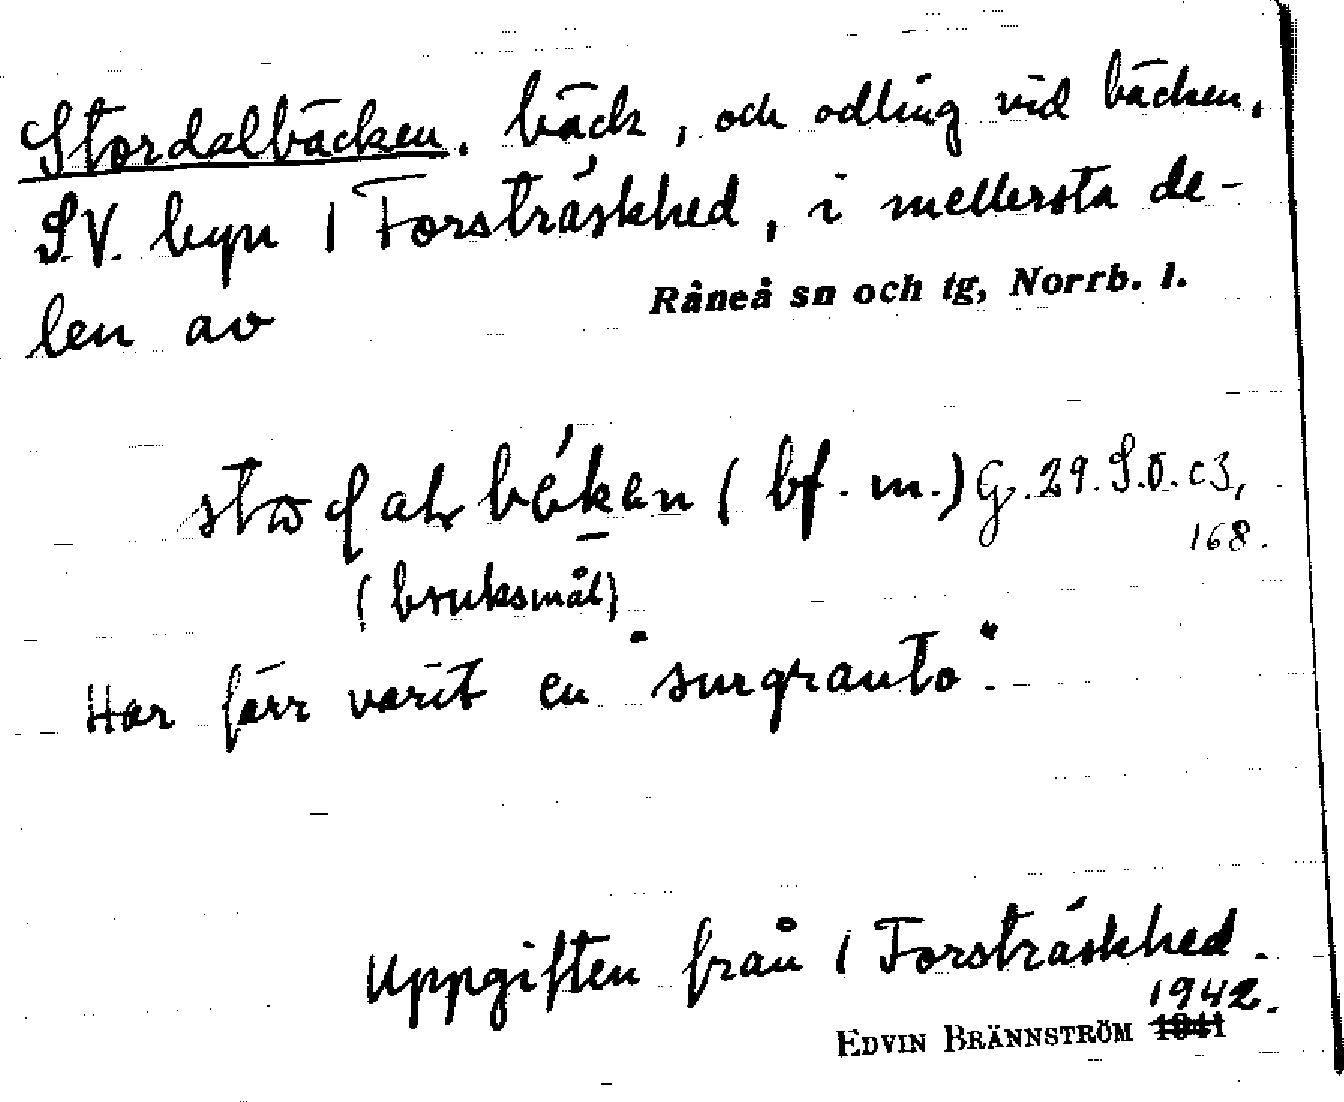 Stordalbäcken. bäck, och odling vid bäcken.
S.V. byn 1 Forsträskhed, i mellersta de-
len av Råneå sn och tg, Norrb. l.
(bf. m.) G. 29. S.Ö. c3,
168.
(bruksmål)
Har förr varit en "surgranto".
Uppgiften från 1 Forsträskhed.
1942.
EDVIN BRÄNNSTRÖM 1941